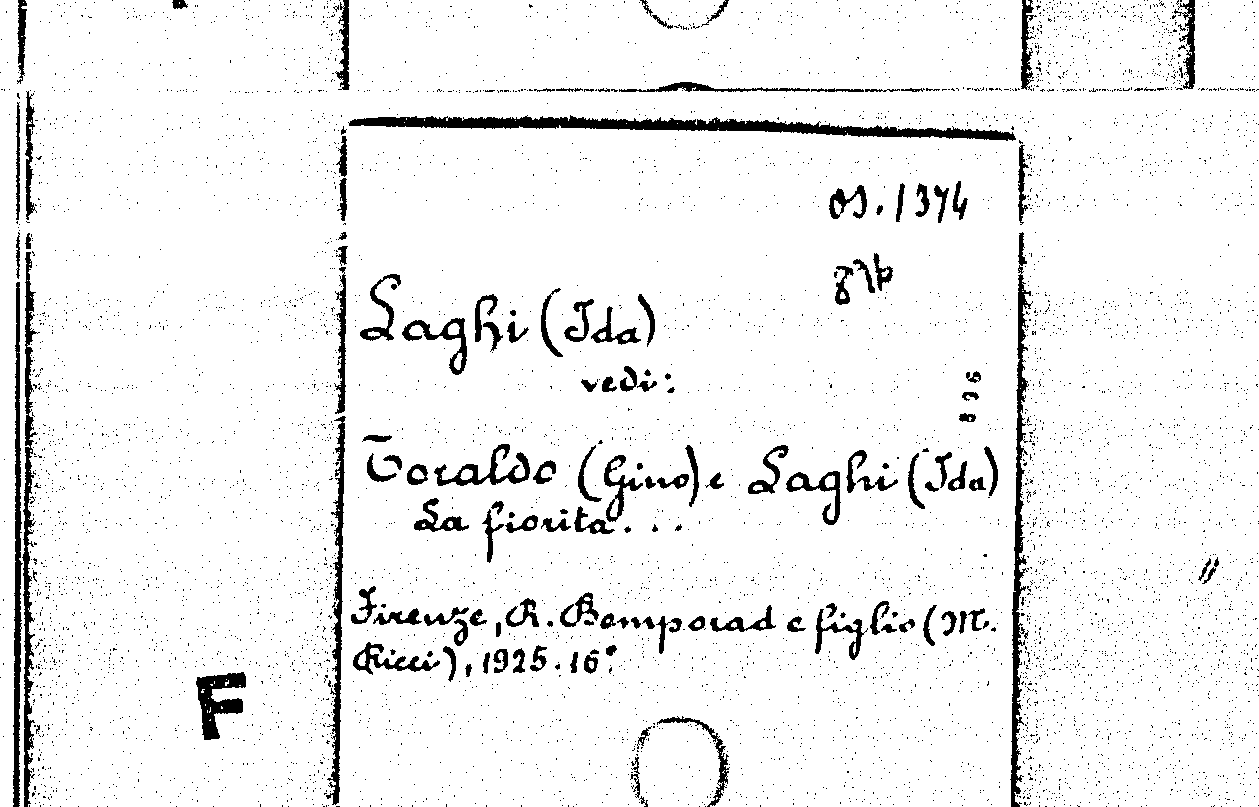 OS. 1374
Laghi (Ida)
vedi:
836
Toraldo (Gino) e Laghi (Ida)
La fiorita. . .
Firenze, R. Bemporad e figlio (M.
Ricci), 1925. 16°.
F